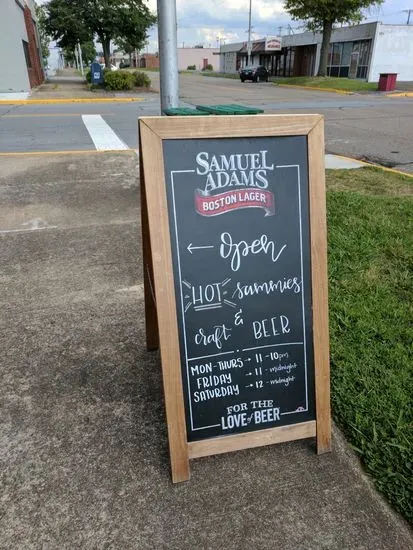 SAMUEL
ADAMS
BOSTON LAGER
← Open
HOT sammies
&
craft BEER
MON-THURS → 11-10pm
FRIDAY → 11-midnight
SATURDAY → 12-midnight
FOR THE
LOVE of BEER